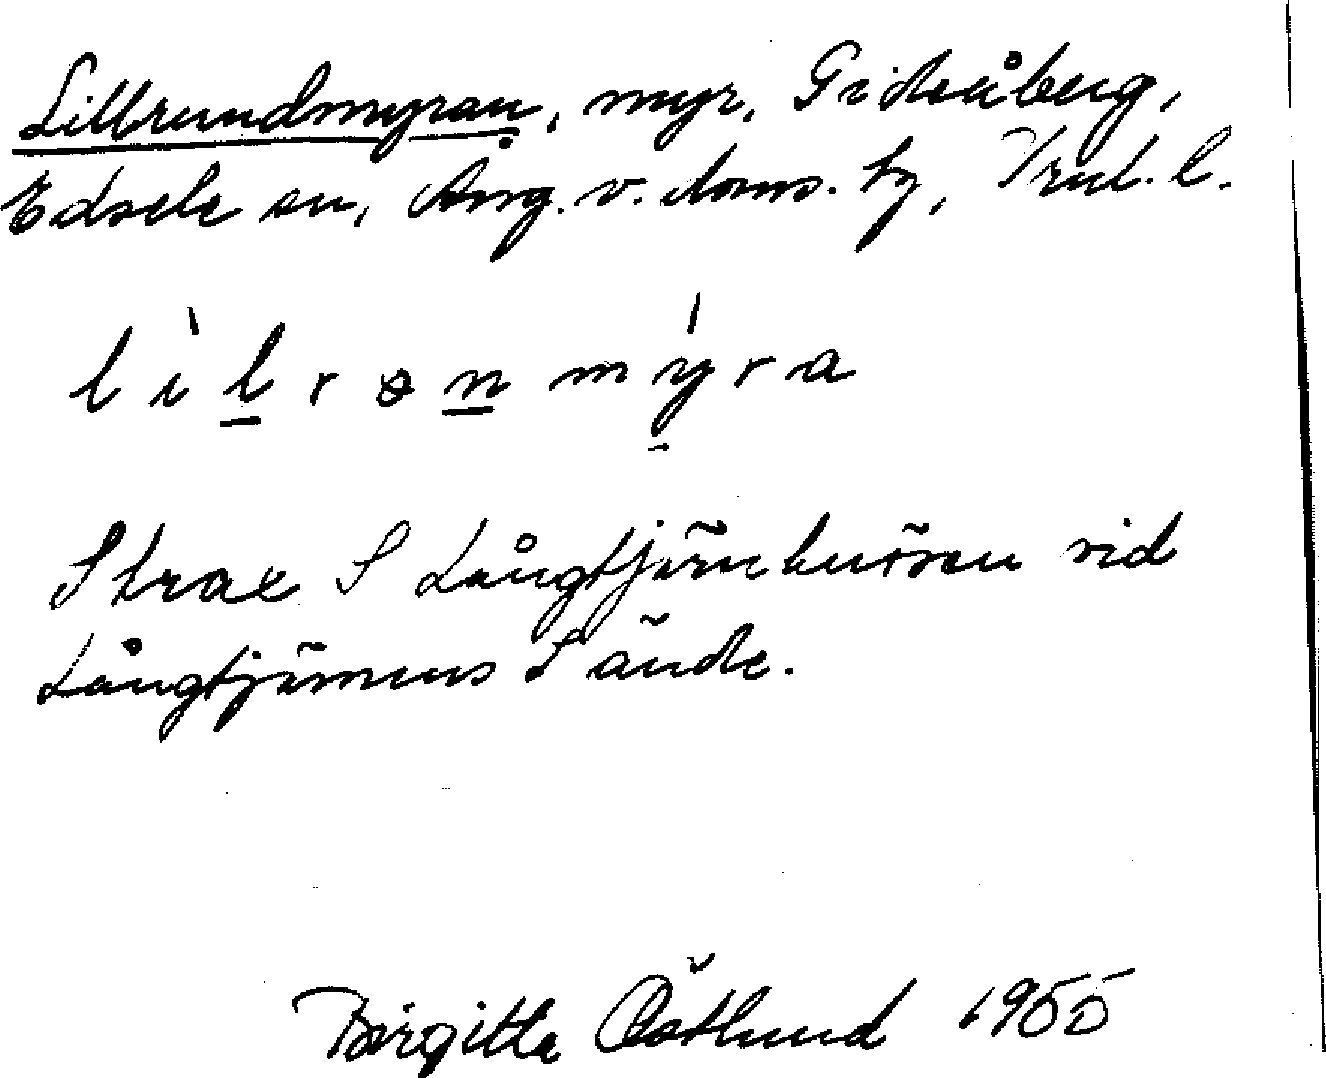 Lillrundmyran, myr, Gideåberg,
Edsele sn, Ång. v. doms. tg, Vnl. l.
lìlrɵnmýra
Strax S Långtjärnbursen vid
Långtjärnens S ände.
Birgitta Östlund 1955